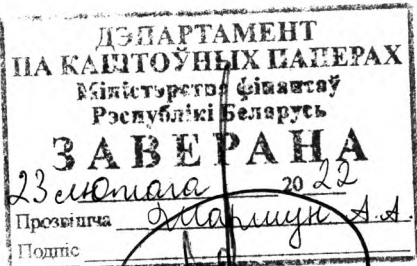 ДЭПАРТАМЕНТ
ПА КАШТОЎНЫХ ПАПЕРАХ
Міністэрства фінансаў
Рэспублікі Беларусь
ЗАВЕРАНА
23 лютага 20 22
Прозвішча А.А.
Подпіс